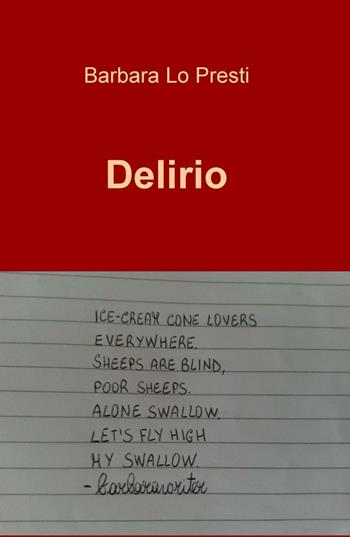 Barbara Lo Presti
Delirio
ICE-CREAM CONE LOVERS
EVERYWHERE.
SHEEPS ARE BLIND,
POOR SHEEPS.
ALONE SWALLOW.
LET'S FLY HIGH
MY SWALLOW.
-barbarawriter